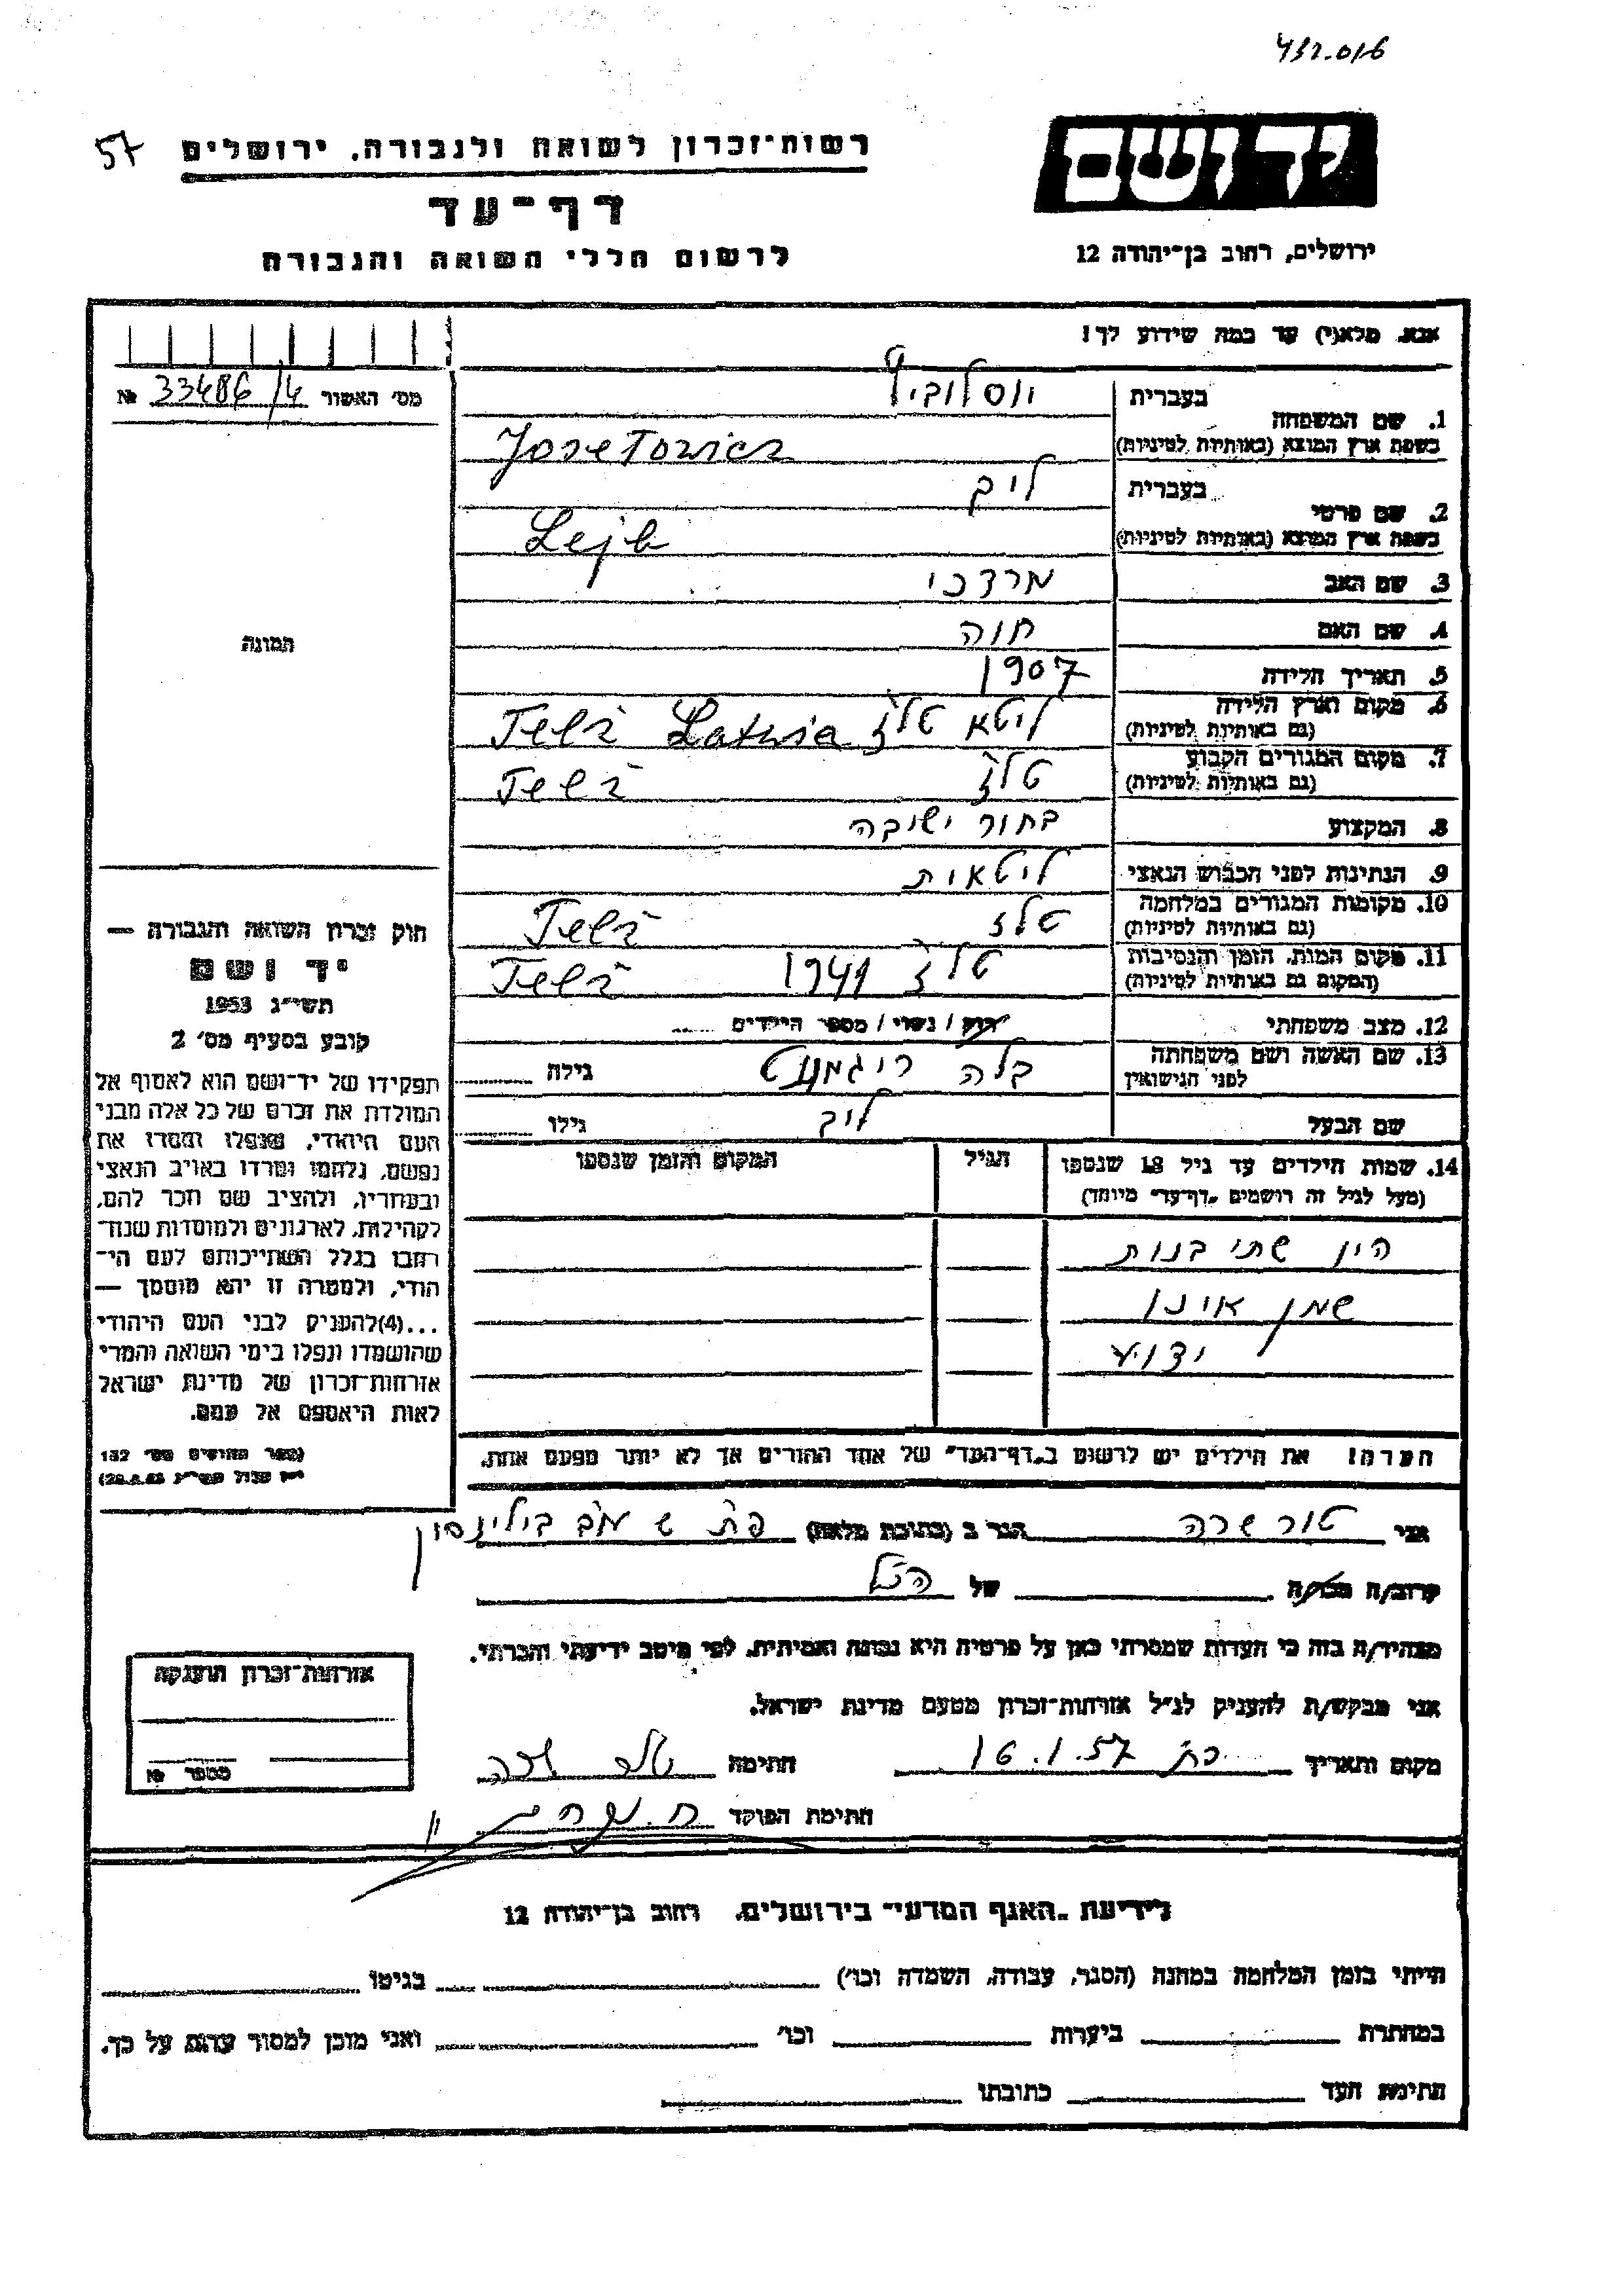 432.016
57
רשות־זכרון לשואה ולגבורה, ירושלים
יד ושם
דף־עד
לרשום חללי השואה והגבורה
ירושלים, רחוב בן־יהודה 12
אנא, מלא(י) עד כמה שידוע לך!
מס׳ האשור 33486/4 №
1. שם המשפחה
בעברית
בשפת ארץ המוצא (באותיות לטיניות)
2. שם פרטי
בעברית ליב
בשפת ארץ המוצא (באותיות לטיניות) Lejb
3. שם האב מרדכי
4. שם האם חוה
5. תאריך הלידה 1907
6. מקום וארץ הלידה ליטא טלז Latwia Telż
(גם באותיות לטיניות)
7. מקום המגורים הקבוע טלז Telż
(גם באותיות לטיניות)
8. המקצוע בחור ישיבה
9. הנתינות לפני הכבוש הנאצי ליטאית
10. מקומות המגורים במלחמה טלז Telż
(גם באותיות לטיניות)
11. מקום המות, הזמן והנסיבות טלז 1941 Telż
(המקום גם באותיות לטיניות)
12. מצב משפחתי רוק / נשוי / מספר הילדים
13. שם האשה ושם משפחתה
לפני הנישואין בלה גילה
שם הבעל ליב גילו
14. שמות הילדים עד גיל 18 שנספו הגיל המקום והזמן שנספו
(מעל לגיל זה רושמים „דף־עד״ מיוחד)
היו שתי בנות
שמן אינו
ידוע
הערה! את הילדים יש לרשום ב„דף־העד״ של אחד ההורים אך לא יותר מפעם אחת.
תמונה
חוק זכרון השואה והגבורה —
יד ושם
תשי״ג 1953
קובע בסעיף מס׳ 2
תפקידו של יד־ושם הוא לאסוף אל
המולדת את זכרם של כל אלה מבני
העם היהודי, שנפלו ומסרו את
נפשם, נלחמו ומרדו באויב הנאצי
ובעוזריו, ולהציב שם וזכר להם,
לקהילות, לארגונים ולמוסדות שנח־
רבו בגלל השתייכותם לעם הי־
הודי, ולמטרה זו יהא מוסמך —
...(4) להעניק לבני העם היהודי
שהושמדו ונפלו בימי השואה והמרי
אזרחות־זכרון של מדינת ישראל
לאות היאספם אל עמם.
(ספר החוקים מס׳ 132
אני טור שרה הגר ב (כתובת מלאה) פ״ת ש מב בילינסון
קרוב/ה מכר/ה של הנ״ל
מצהיר/ה בזה כי העדות שמסרתי כאן על פרטיה היא נכונה ואמיתית, לפי מיטב ידיעתי והכרתי.
אני מבקש/ת להעניק לנ״ל אזרחות־זכרון מטעם מדינת ישראל.
מקום ותאריך פ״ת 16.1.57 חתימה
חתימת הפוקד
אזרחות־זכרון הוענקה
מספר №
לידיעת „האגף המדעי״ בירושלים, רחוב בן־יהודה 12
הייתי בזמן המלחמה במחנה (הסגר, עבודה, השמדה וכו׳) בגיטו
במחתרת ביערות וכו׳ ואני מוכן למסור עדות על כך.
חתימת העד כתובתו